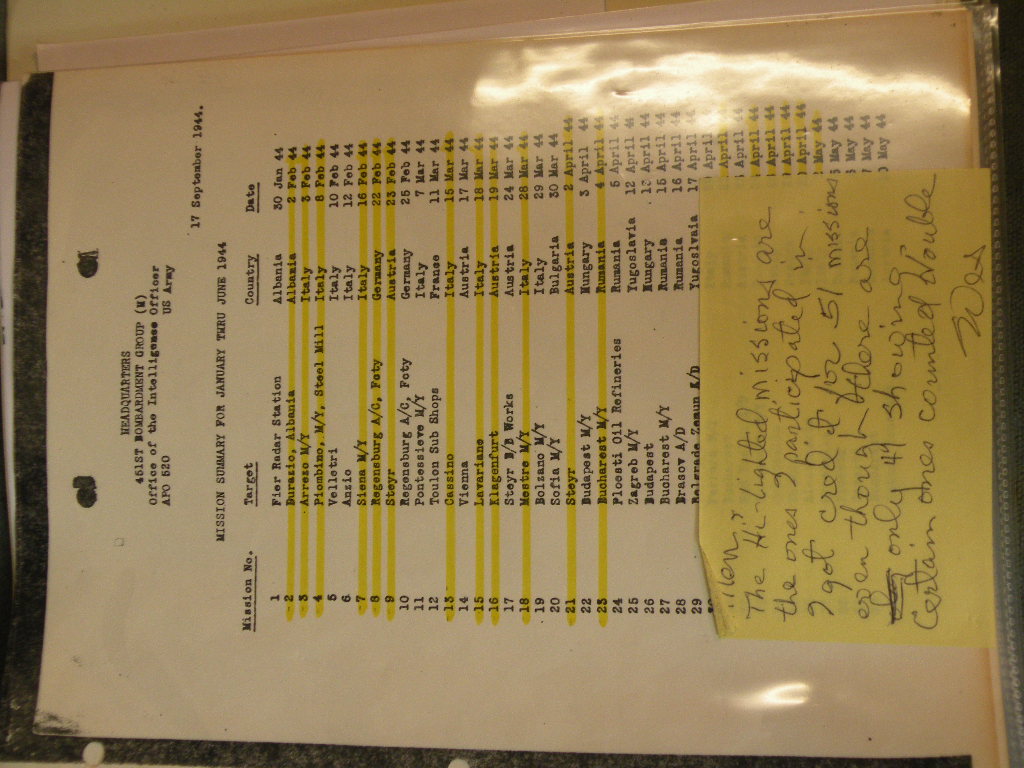 HEADQUARTERS
461ST BOMBARDMENT GROUP (H)
Office of the Intelligence Officer
APO 520 US Army
17 September 1944.
MISSION SUMMARY FOR JANUARY THRU JUNE 1944
Mission No. Target Country Date
1 Fier Radar Station Albania 30 Jan 44
2 Durazio, Albania Albania 2 Feb 44
3 Arrezo M/Y Italy 3 Feb 44
4 Piombino, M/Y, Steel Mill Italy 8 Feb 44
5 Velletri Italy 10 Feb 44
6 Anzio Italy 12 Feb 44
7 Siena M/Y Italy 16 Feb 44
8 Regensburg A/C, Fcty Germany 22 Feb 44
9 Steyr Austria 23 Feb 44
10 Regensburg A/C, Fcty Germany 25 Feb 44
11 Pontessieve M/Y Italy 7 Mar 44
12 Toulon Sub Shops Franse 11 Mar 44
13 Cassino Italy 15 Mar 44
14 Vienna Austria 17 Mar 44
15 Lavariano Italy 18 Mar 44
16 Klagenfurt Austria 19 Mar 44
17 Steyr B/B Works Austria 24 Mar 44
18 Mestre M/Y Italy 28 Mar 44
19 Bolzano M/Y Italy 29 Mar 44
20 Sofia M/Y Bulgaria 30 Mar 44
21 Steyr Austria 2 April 44
22 Budapest M/Y Hungary 3 April 44
23 Bucharest M/Y Rumania 4 April 44
24 Ploesti Oil Refineries Rumania 5 April 44
25 Zagreb M/Y Yugoslavia 12 April 44
26 Budapest Hungary 13 April 44
27 Bucharest M/Y Rumania 15 April 44
28 Brasov A/D Rumania 16 April 44
29 Belgrade Zemun A/D Yugoslvaia 17 April 44
April 44
April 44
April 44
April 44
April 44
May 44
May 44
May 44
May 44
May 44
The Hi-Lighted missions are
the ones I participated in.
I got credit for 51 missions
even though there are
only 49 showing
Certain ones counted Double
Wes